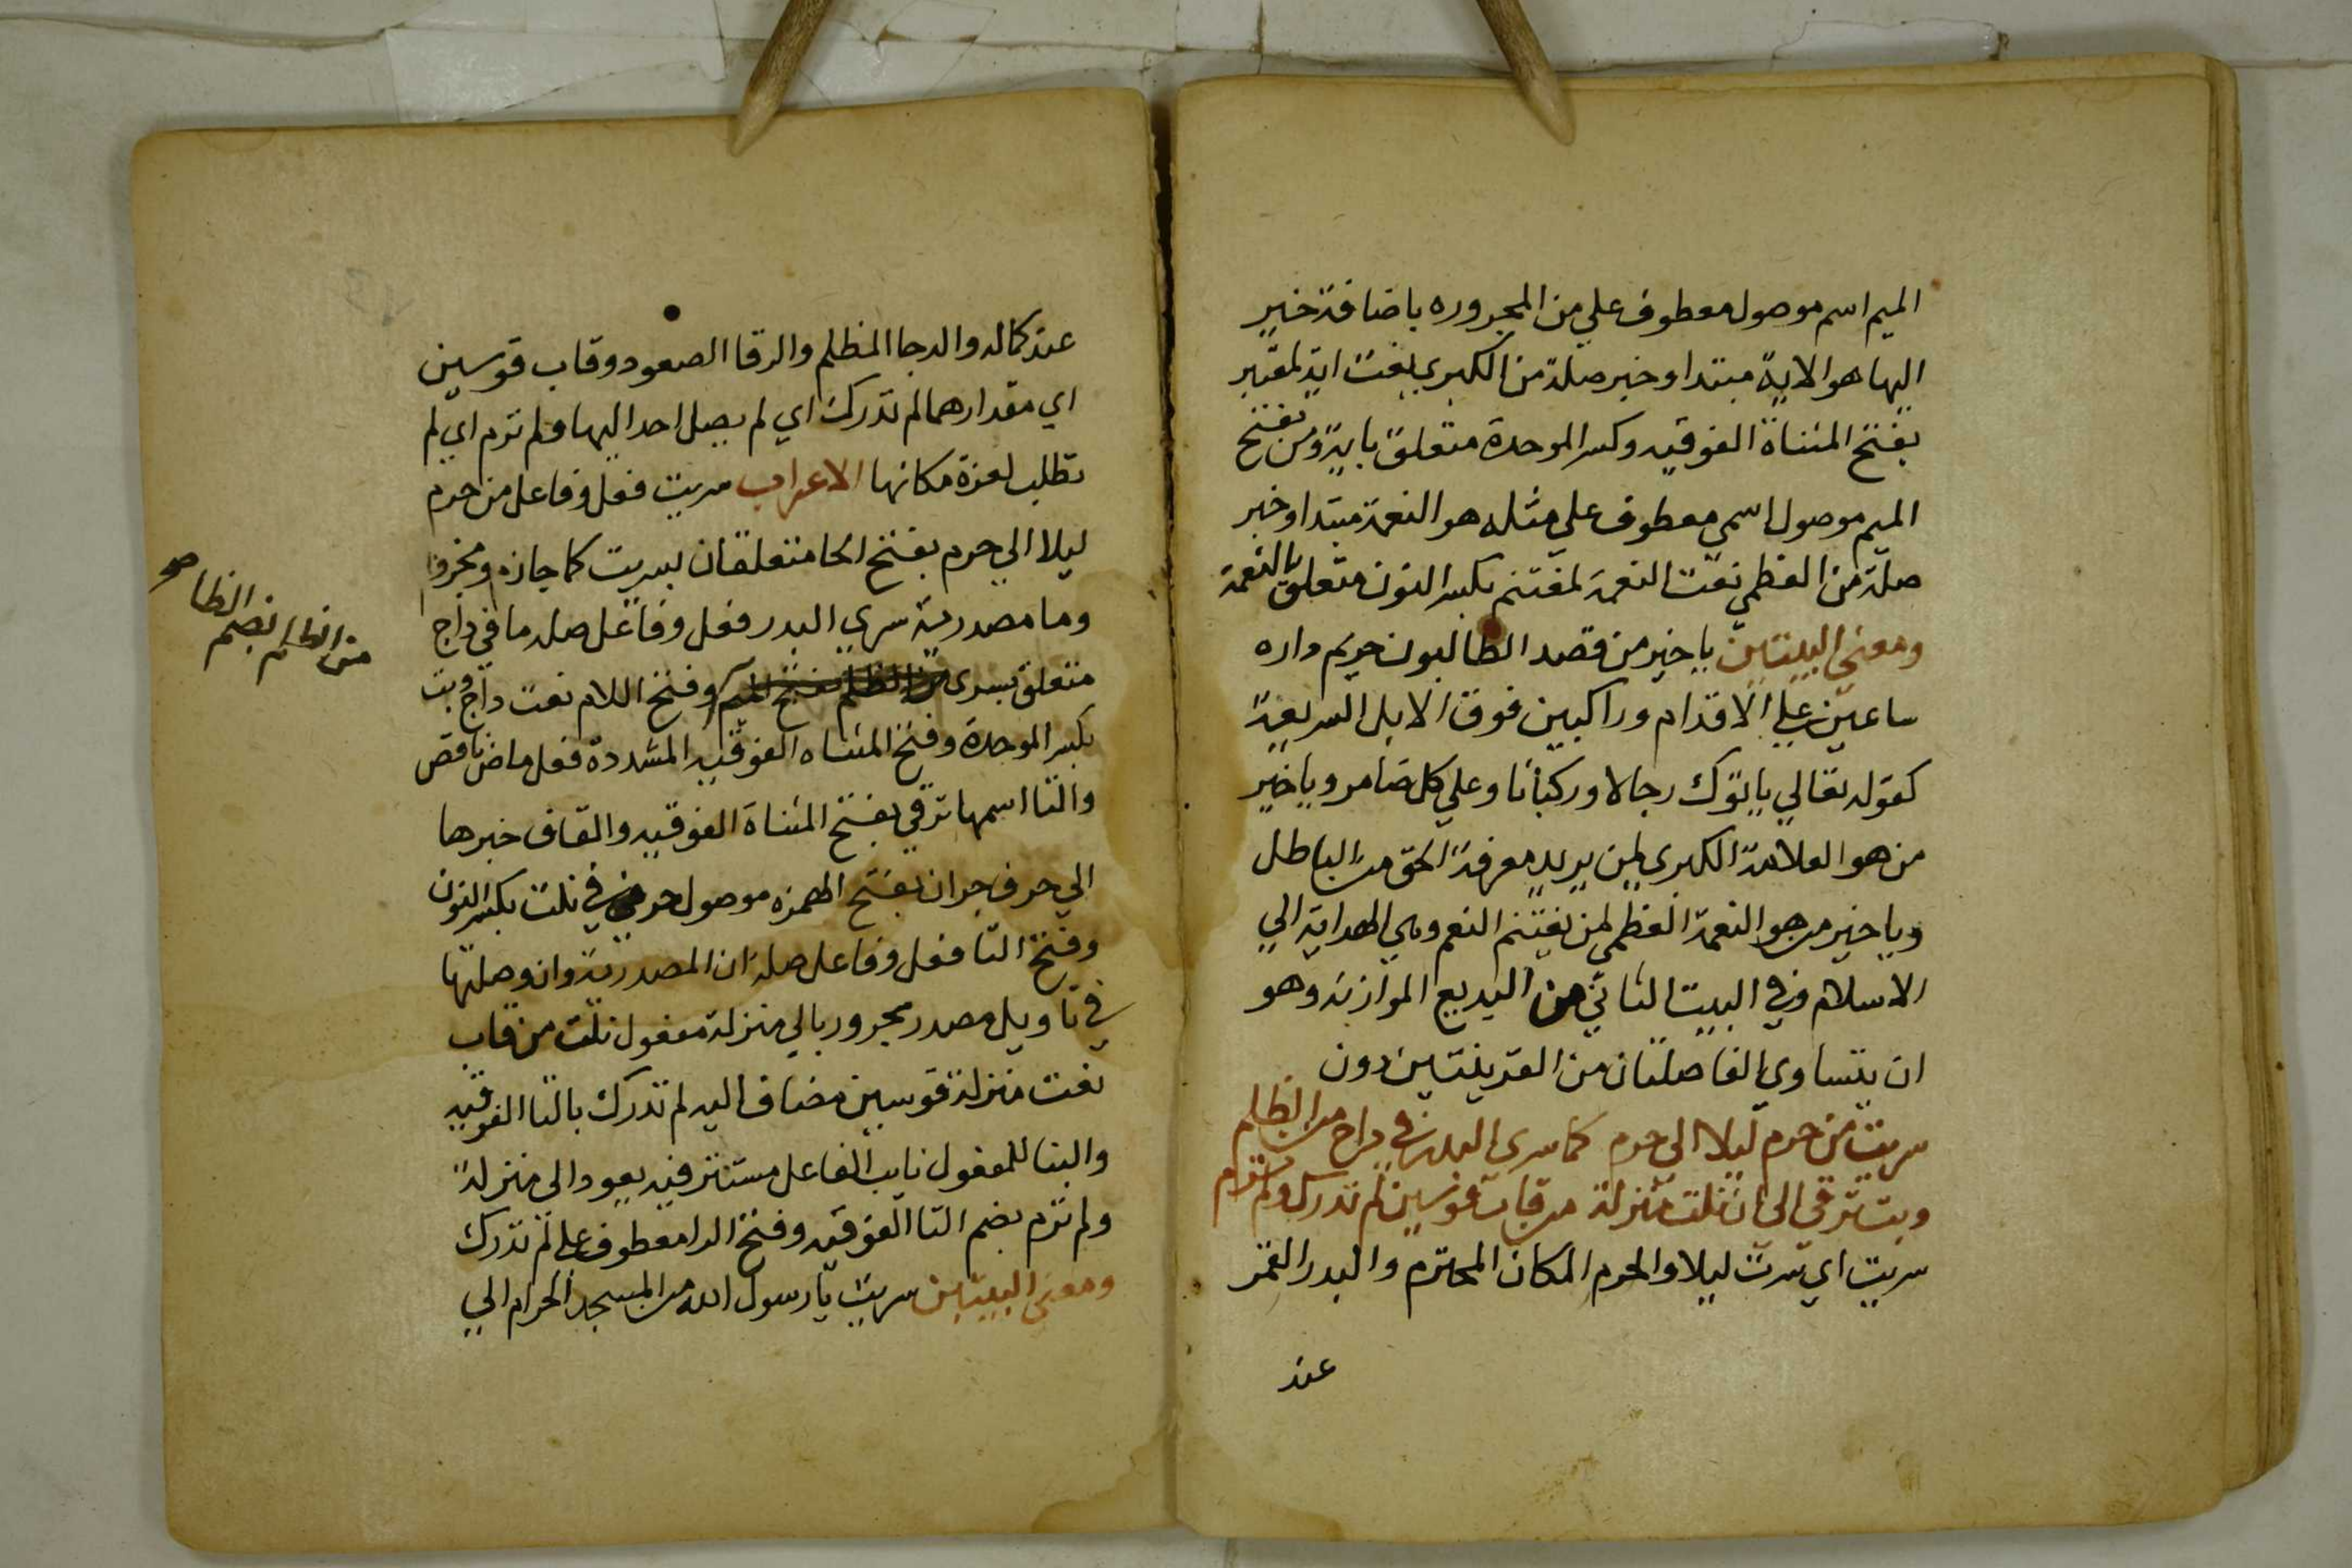 الميم اسم موصول معطوف علي من المجروره باضافة خير
اليها هو الاية مبتدا وخبر صلة من الكبري نعت اية لمعتبر
بفتح المثناة الفوقيه وكسر الموحدة متعلق باية ومن بفتح
الميم موصول اسمي معطوف علي مثله هو النعمة مبتدا وخبر
صلة من العظمي نعت النعمة لمغتنم بكسر النون متعلق بالنعمة
ومعني البيتين يا خير من قصد الطالبون حريم داره
ساعين علي الاقدام وراكبين فوق الابل السريعة
كقوله تعالي ياتوك رجالا وركبانا وعلي كل ضامر ويا خير
من هو العلامة الكبري لمن يريد معرفة الحق من الباطل
ويا خير من هو النعمة العظمي لمن يغتنم النعم وهي الهداية الي
الاسلام وفي البيت الثاني من البديع الموازنه وهو
ان يتساوي الفاصلتان من القرينتين دون
سريت من حرم ليلا الي حرم كما سري البدر في داج من الظلم
وبت ترقي الي ان نلت منزلة من قاب قوسين لم تدرك ولم ترم
سريت اي سرت ليلا والحرم المكان المحترم والبدر القمر
عند
عند كماله والدجا المظلم والرقا الصعود وقاب قوسين
اي مقدارهما لم تدرك اي لم يصل احد اليها ولم ترم اي لم
تطلب لعزة مكانها الاعراب سريت فعل وفاعل من حرم
ليلا الي حرم بفتح الحا متعلقان بسريت كما جازه ومجرور
وما مصدرية سري البدر فعل وفاعل صله ما في داج
متعلق بسري من الظلم بفتح الميم وفتح اللام نعت داج وبت
من الظلم بضم الظا صح
بكسر الموحدة وفتح المثناه الفوقيه المشددة فعل ماض ناقص
والتا اسمها ترقي بفتح المثناة الفوقيه والقاف خبرها
الي حرف جر ان بفتح الهمزه موصول حرفي نلت بكسر النون
وفتح التا فعل وفاعل صلة ان المصدرية وان وصلتها
في تاويل مصدر مجرور بالي منزلة مفعول نلت من قاب
نعت منزلة قوسين مضاف اليه لم تدرك بالتا الفوقيه
والبنا للمفعول نايب الفاعل مستتر فيه يعود الي منزلة
ولم ترم بضم التا الفوقيه وفتح الرا معطوف علي لم تدرك
ومعني البيتين سريت يا رسول الله من المسجد الحرام الي